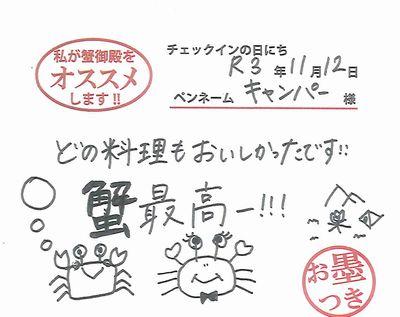 私が蟹御殿を
オススメ
します!!
チェックインの日にち
R3年11月12日
ペンネーム キャンパー 様
どの料理もおいしかったです!!
蟹最高ー!!!
お墨
つき